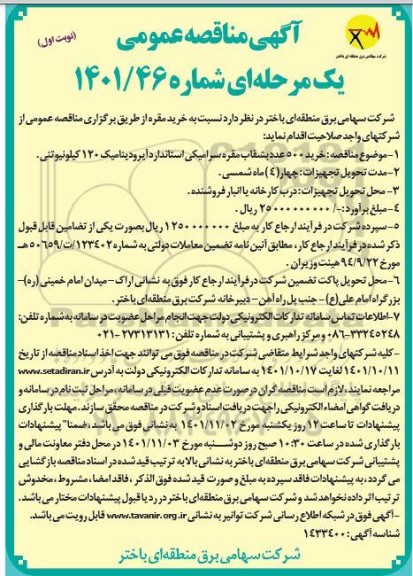 آگهی مناقصه عمومی
(نوبت اول)
شرکت سهامی برق منطقه ای باختر
یک مرحله‌ای شماره ۱۴۰۱/۴۶
شرکت سهامی برق منطقه‌ای باختر در نظر دارد نسبت به خرید مقره از طریق برگزاری مناقصه عمومی از
شرکتهای واجد صلاحیت اقدام نماید:
۱- موضوع مناقصه: خرید ۵۰۰۰ عدد بشقاب مقره سرامیکی استاندارد آیرودینامیک ۱۲۰ کیلونیوتنی.
۲- مدت تحویل تجهیزات: چهار (۴) ماه شمسی.
۳- محل تحویل تجهیزات: درب کارخانه یا انبار فروشنده.
۴- مبلغ برآورد: -/۲۵۰۰۰۰۰۰۰۰۰ ریال.
۵- سپرده شرکت در فرآیند ارجاع کار به مبلغ ۱۲۵۰۰۰۰۰۰۰ ریال بصورت یکی از تضامین قابل قبول
ذکر شده در فرآیند ارجاع کار، مطابق آئین نامه تضمین معاملات دولتی به شماره ۱۲۳۴۰۲/ت۵۰۶۵۹هـ
مورخ ۹۴/۹/۲۲ هیئت وزیران.
۶- محل تحویل پاکت تضمین شرکت در فرآیند ارجاع کار فوق به نشانی اراک - میدان امام خمینی (ره) -
بزرگراه امام علی(ع) - جنب پل راه آهن - دبیرخانه شرکت برق منطقه‌ای باختر.
۷- اطلاعات تماس سامانه تدارکات الکترونیکی دولت جهت انجام مراحل عضویت در سامانه به شماره تلفن:
۳۳۲۴۵۲۴۸-۰۸۶ و مرکز راهبری و پشتیبانی به شماره تلفن: ۲۷۳۱۳۱۳۱-۰۲۱
- کلیه شرکتهای واجد شرایط متقاضی شرکت در مناقصه فوق می توانند جهت اخذ اسناد مناقصه از تاریخ
۱۴۰۱/۱۰/۱۱ لغایت ۱۴۰۱/۱۰/۱۷ به سامانه تدارکات الکترونیکی دولت به آدرس www.setadiran.ir
مراجعه نمایند، لازم است مناقصه گران در صورت عدم عضویت قبلی در سامانه، مراحل ثبت نام در سامانه و
دریافت گواهی امضاء الکترونیکی را جهت دریافت اسناد و شرکت در مناقصه محقق سازند. مهلت بارگذاری
پیشنهادات تا ساعت ۱۲ روز یکشنبه مورخ ۱۴۰۱/۱۱/۰۲ به نشانی فوق می باشد، ضمنا" پیشنهادات
بارگذاری شده در ساعت ۱۰:۳۰ صبح روز دوشنبه مورخ ۱۴۰۱/۱۱/۰۳ در محل دفتر معاونت مالی و
پشتیبانی شرکت سهامی برق منطقه‌ای باختر به نشانی بالا به ترتیب قید شده در اسناد مناقصه بازگشایی
می گردد، به پیشنهادات فاقد سپرده به مبلغ و صورت قید شده فوق الذکر، فاقد امضا، مشروط، مخدوش
ترتیب اثر داده نخواهد شد و شرکت سهامی برق منطقه‌ای باختر در رد یا قبول پیشنهادات مختار می باشد.
- آگهی فوق در شبکه اطلاع رسانی شرکت توانیر به نشانی www.tavanir.org.ir قابل رویت می باشد.
شناسه آگهی: ۱۴۳۳۴۰۰
شرکت سهامی برق منطقه‌ای باختر